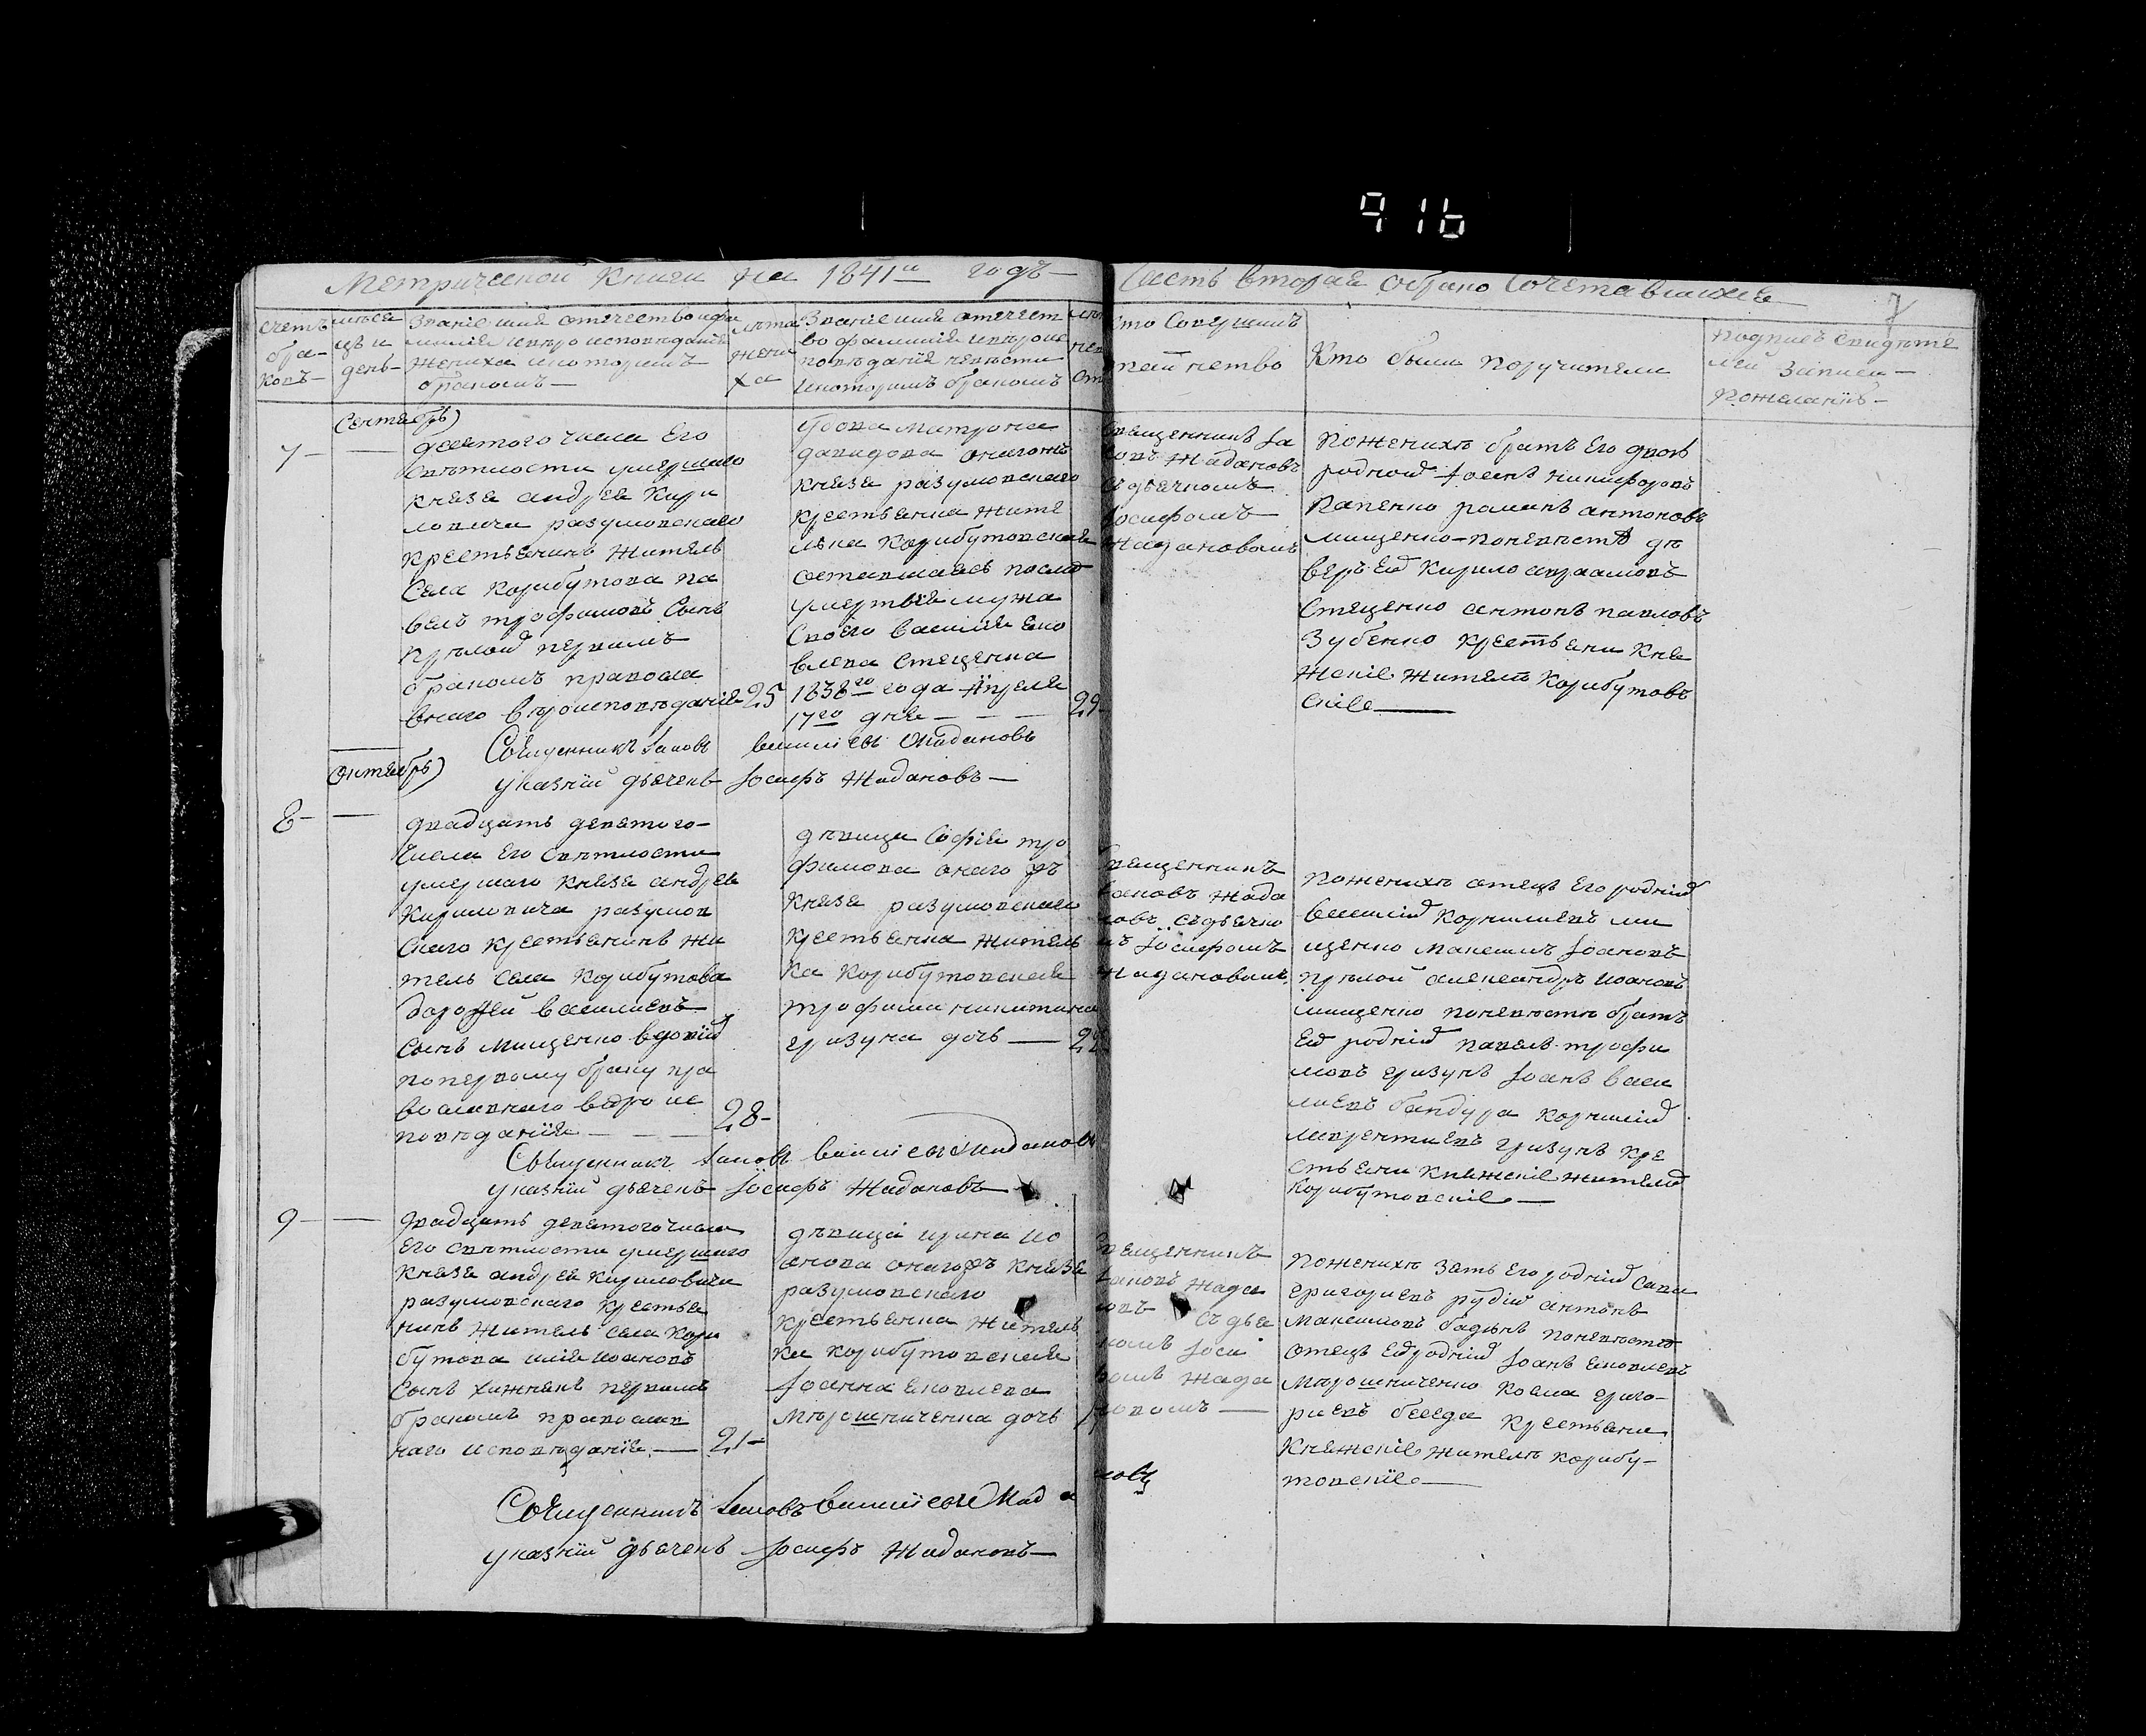 916
Метрической книги на 1841й годъ —
Часть вторая обрако сочетавшихся
7
счетъ
бра-
ковъ-
меся
цъ и
день-
Званіе имя отечество и фа
милия и веро исповеданія
жениха и которимъ
бракомъ —
лета
жени
ха
Званіе имя отечест
во фамилія и вероис
поведаніе невести
и которимъ бракомъ
Кто Совершилъ
таинство
Кто были Поручители
подписъ свидете
лей записи —
Пожеланію —
Сентябрь)
7 — —
десятого числа Его
Светлости умершаго
князя андрея Кири
ловича разумовскаго
крестьянинъ житель
Села Корибутова па
велъ трофимовъ Сынъ
прелой первимъ
бракомъ правосла
внаго вероисповеданія
25
Удова Матрона
давидова онагожъ
князя разумовскаго
крестьянка жите
лька Корибутовская
оставшаясь после
умертвія мужа
Своего василія яко
влева Стеценка
1838го года Апреля
17го дня — — —
29
Священникъ Іа
ковъ Жадановъ
съ дьячкомъ
Іосифомъ —
Жадановомъ
Поженихе братъ Его двою
родной Іосипъ никифоровъ
Папенко романъ антоновъ
мищенко — поневесте де
веръ Ей Кирило авраамовъ
Стеценко антонъ павловъ
Зубенко крестьяни кня
жскіе жителе Корибутовъ
скіе —
Священникъ Іаковъ василіевъ Жадановъ
указній дьячекъ Іосифъ Жадановъ —
Октябрь)
8 — —
двадцать девятого —
Числа Его светлости
умершаго князя андрея
Кириловича разумов
скаго крестьянинъ жи
тель села Корибутова
дорофей василиевъ
сынъ Мищенко вдовій
попервому браку пра
вославнаго веро ис
поведанія — — —
28 —
девица Софія тро
фимова онаго жъ
князя разумовскаго
крестьянка житель
ка Корибутовская
трофима никитина
гризуна дочь —
22
Священникъ
Іаковъ Жада
новъ съ дьячко
мъ Іосифомъ
Жадановомъ
поженихе отецъ Его родній
василій Корнилиевъ ми
щенко максимъ Іоановъ
прелой александръ иоановъ
мищенко поневесте братъ
Ей родній павелъ трофи
мовъ гризунъ Іоанъ васи
лиевъ бандура корнилій
лаврентиевъ гризунъ кре
стьяни княжскіе жителе
Корибутовскіе —
Священникъ Іаковъ василіевъ Жадановъ
указній дьячекъ Іосифъ Жадановъ —
9 — —
двадцать девятого числа
Его светлости умершаго
князя андрея кириловича
разумовскаго крестья
нинъ житель села Кори
бутова илія иоановъ
сынъ хижнякъ первимъ
бракомъ православ
наго исповеданія —
21 —
девица ирина ио
анова онагожъ князя
разумовскаго
крестьянка житель
ка корибутовская
Іоанна яковлева
Мерошниченка дочь
Священникъ
Іаковъ Жада
новъ съ дья
комъ Іоси
фомъ Жада
новомъ —
поженихе зять Его родній сави
григориевъ рудій антонъ
максимовъ бадынъ поневесте
отецъ Ей родній Іоанъ яковлевъ
Мерошниченко косма григо-
риевъ беседа крестьяни
княжскіе жителе корибу-
товскіе —
Священникъ Іаковъ василіевъ Жадановъ
указній дьячекъ Іосифъ Жадановъ —